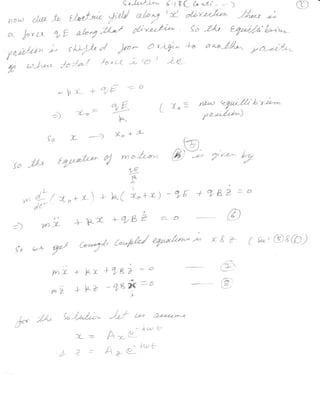 Solution 6.18 (Conti...) ①
now due to Electric field along 'x' direction there is
a force qE along that direction. So the Equilibrium
position is shifted from Origin to another position
where total force is '0' i.e.
-kx + qE = 0
⇒ x₀ = qE/k ( x₀ ≡ new equilibrium position)
So x → x₀ + x
So the Equation of motion ⑤ is given by
m d²/dt² (x₀ + x) + k( x₀ + x) - qE + qBż = 0
⇒ mẍ + kx + qBż = 0 — ⑥
So we get Coupled equations in x & z
mẍ + kx + qBż = 0 — ⑦
mz̈ + kz - qBẋ = 0 — ⑧
for the Solution let us assume
x = Aₓe^{-iωt}
& z = A_z e^{-iωt}